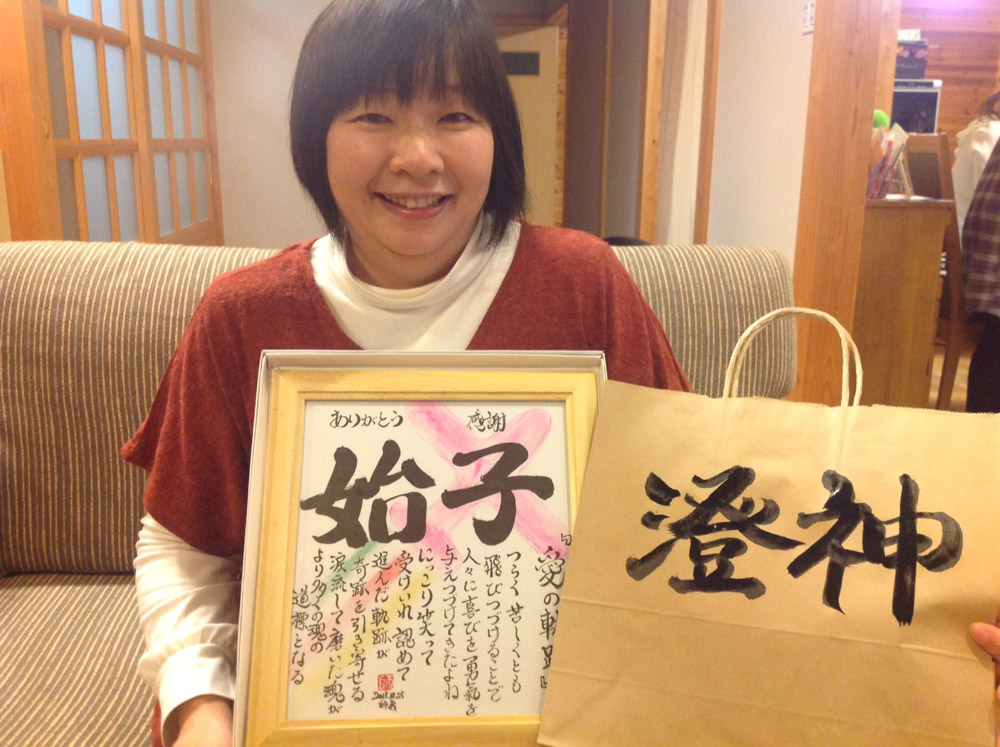 ありがとう 感謝
始子
「愛の軌跡」
つらく苦しくとも
飛びつづけることで
人々に喜びを勇氣を
与えつづけてきたよね
にっこり笑って
受けいれ認めて
進んだ軌跡が
奇跡を引き寄せる
涙流して磨いた魂が
より多くの魂の
道標となる
澄神